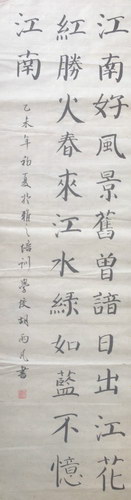 江南好風景舊曾諳日出江花
紅勝火春來江水綠如藍不憶
江南
乙未年初夏於培訓學校胡書